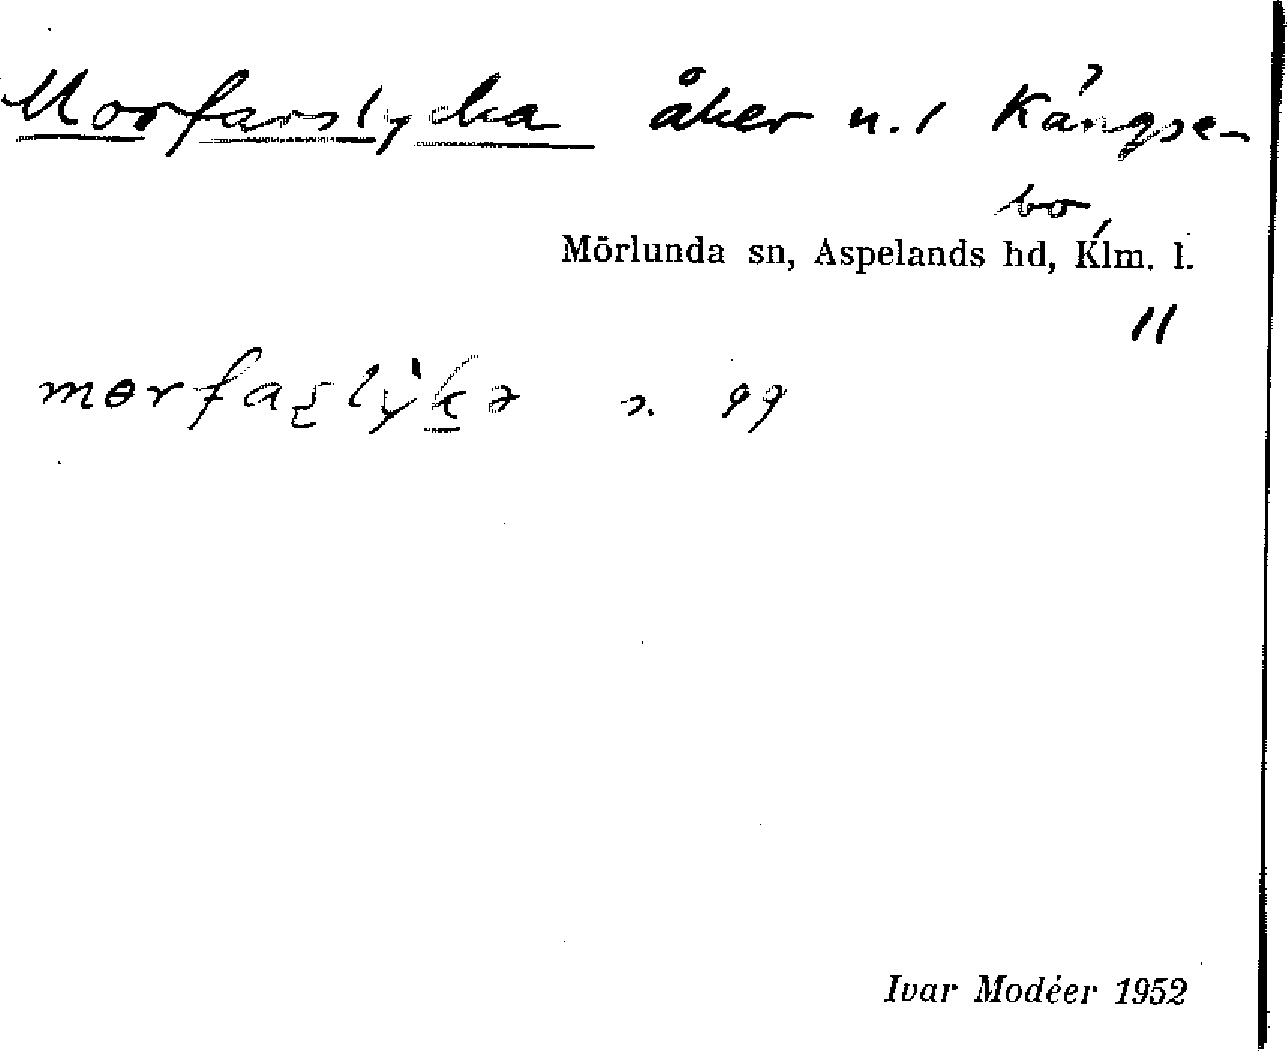 Morfarslycka åker u. / Kångse-
bo,
Mörlunda sn, Aspelands hd, Klm. l.
11
99
Ivar Modéer 1952